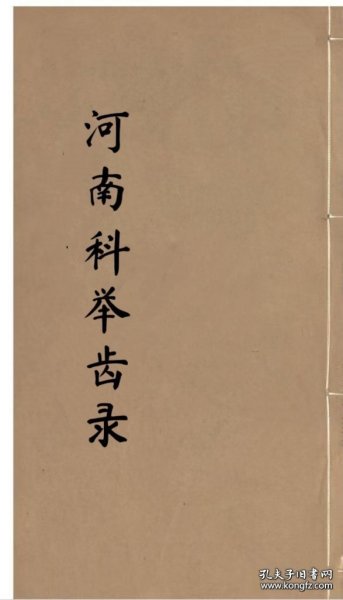 河南科举齿录
孔夫子旧书网
www.kongfz.com